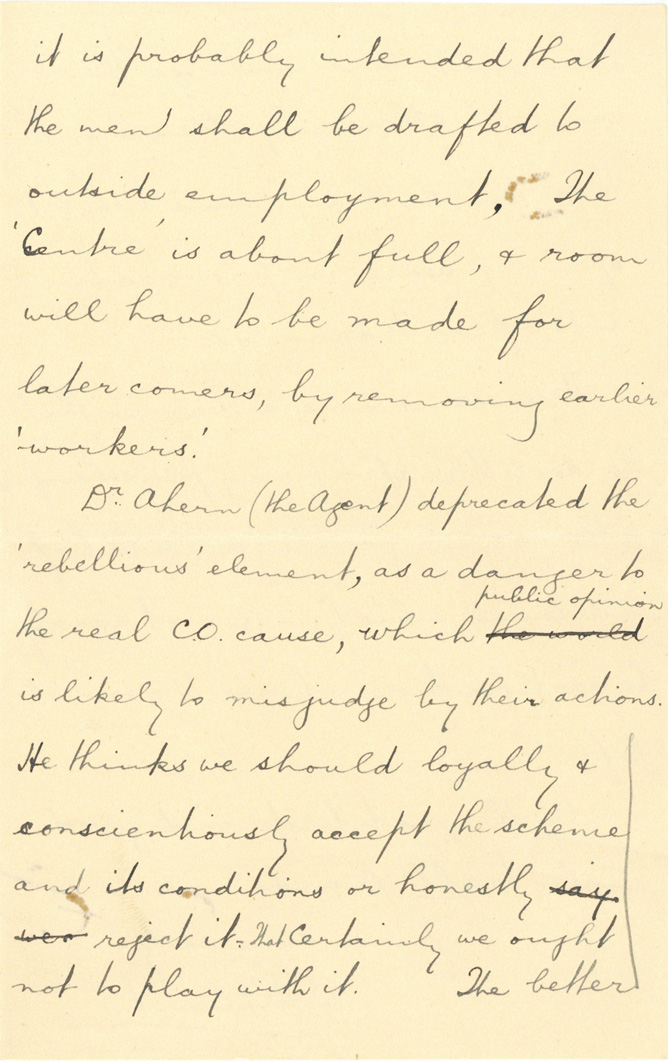 it is probably intended that
the men shall be drafted to
outside employment, The
'Centre' is about full, & room
will have to be made for
later comers, by removing earlier
'workers.'
Dr. Ahern (the Agent) deprecated the
'rebellious' element, as a danger to
public opinion
the real C.O. cause, which the world
is likely to misjudge by their actions.
He thinks we should loyally &
conscientiously accept the scheme
and its conditions or honestly say
reject it. That Certainly we ought
not to play with it. The better